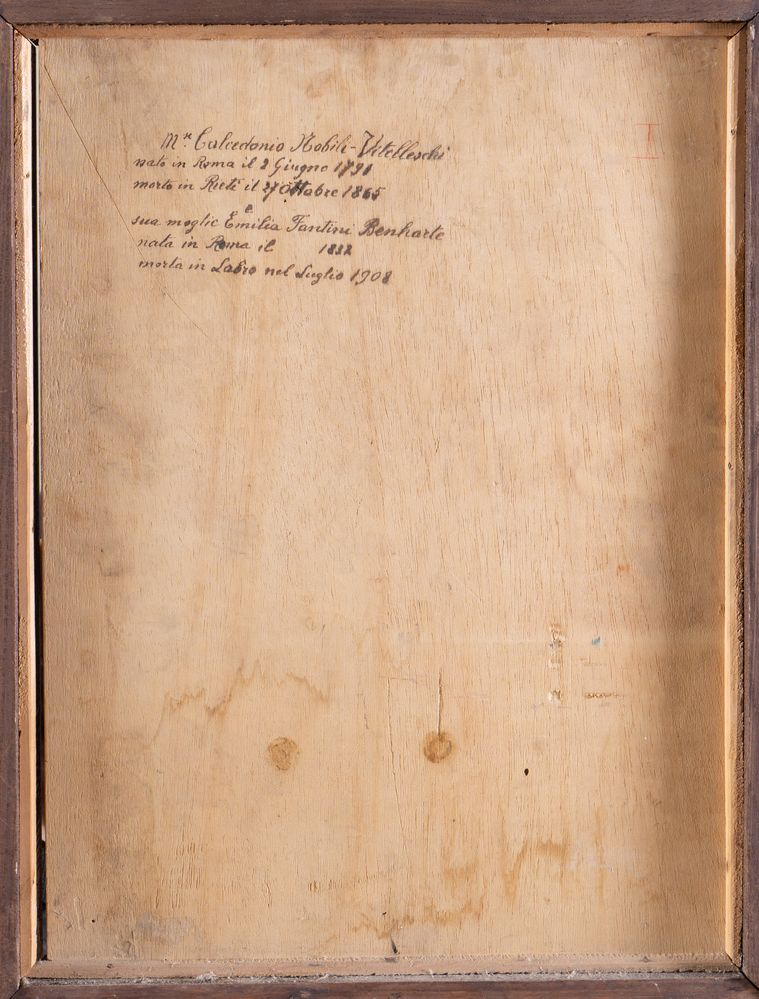 Mr. Calcedonio Nobili-Vitelleschi
nato in Roma il 2 Giugno 1791
morto in Rieti il 27 Ottobre 1865
e
sua moglie Emilia Fantini Benharte
nata in Roma il 1832
morta in Labro nel Luglio 1908